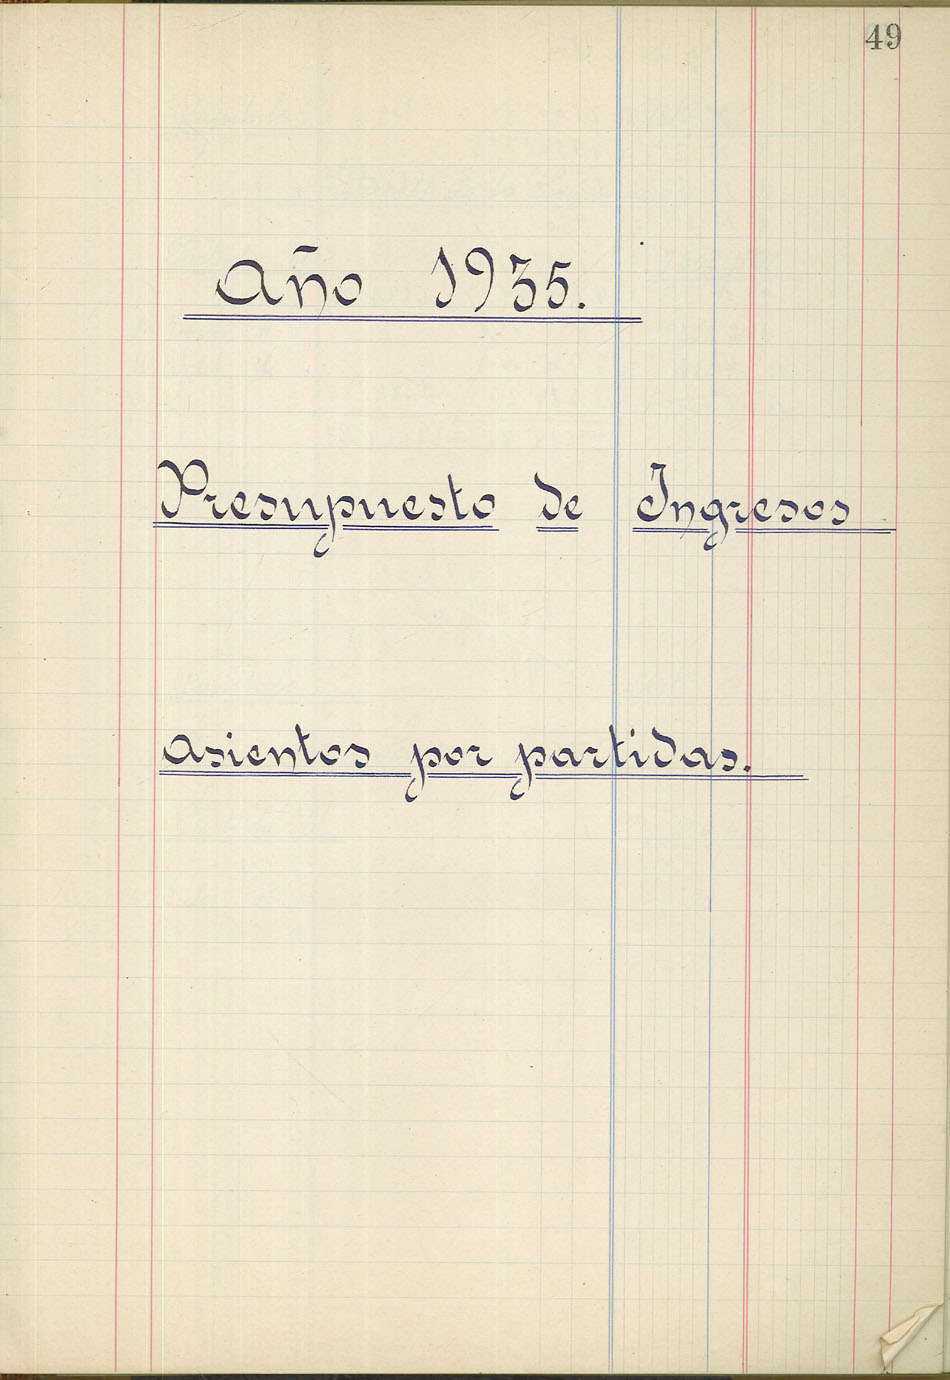 49
Año 1935.
Presupuesto de Ingresos
asientos por partidas.